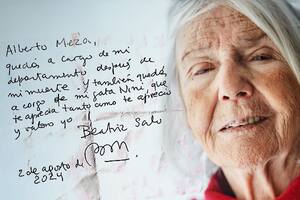 Alberto Meza,
quedás a cargo de mi
departamento después de
mi muerte y también quedás
a cargo de mi gata Nini que
te aprecia tanto como te aprecio
y valoro yo
Beatriz Sarlo
2 de agosto de
2024